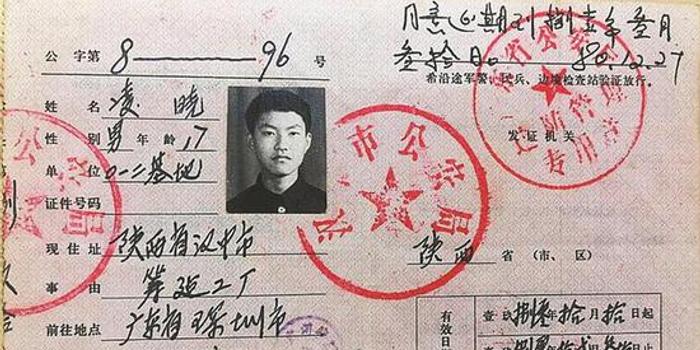 同意延期到捌壹年叁月
叁拾日。 80.12.27
希沿途军警、民兵、边境检查站验证放行。
公 字第 8——96 号
姓 名 凌 晓
性 别 男 年 龄 17
单 位 0一二基地
证件号码
现住址 陕西省汉中市
事 由 筹建工厂
前往地点 广东省 圳市
发证机关
陕西 省 (市、区)
省公安
边防管理
专用章
市公安局
有效日
查 捌 年拾月拾日起